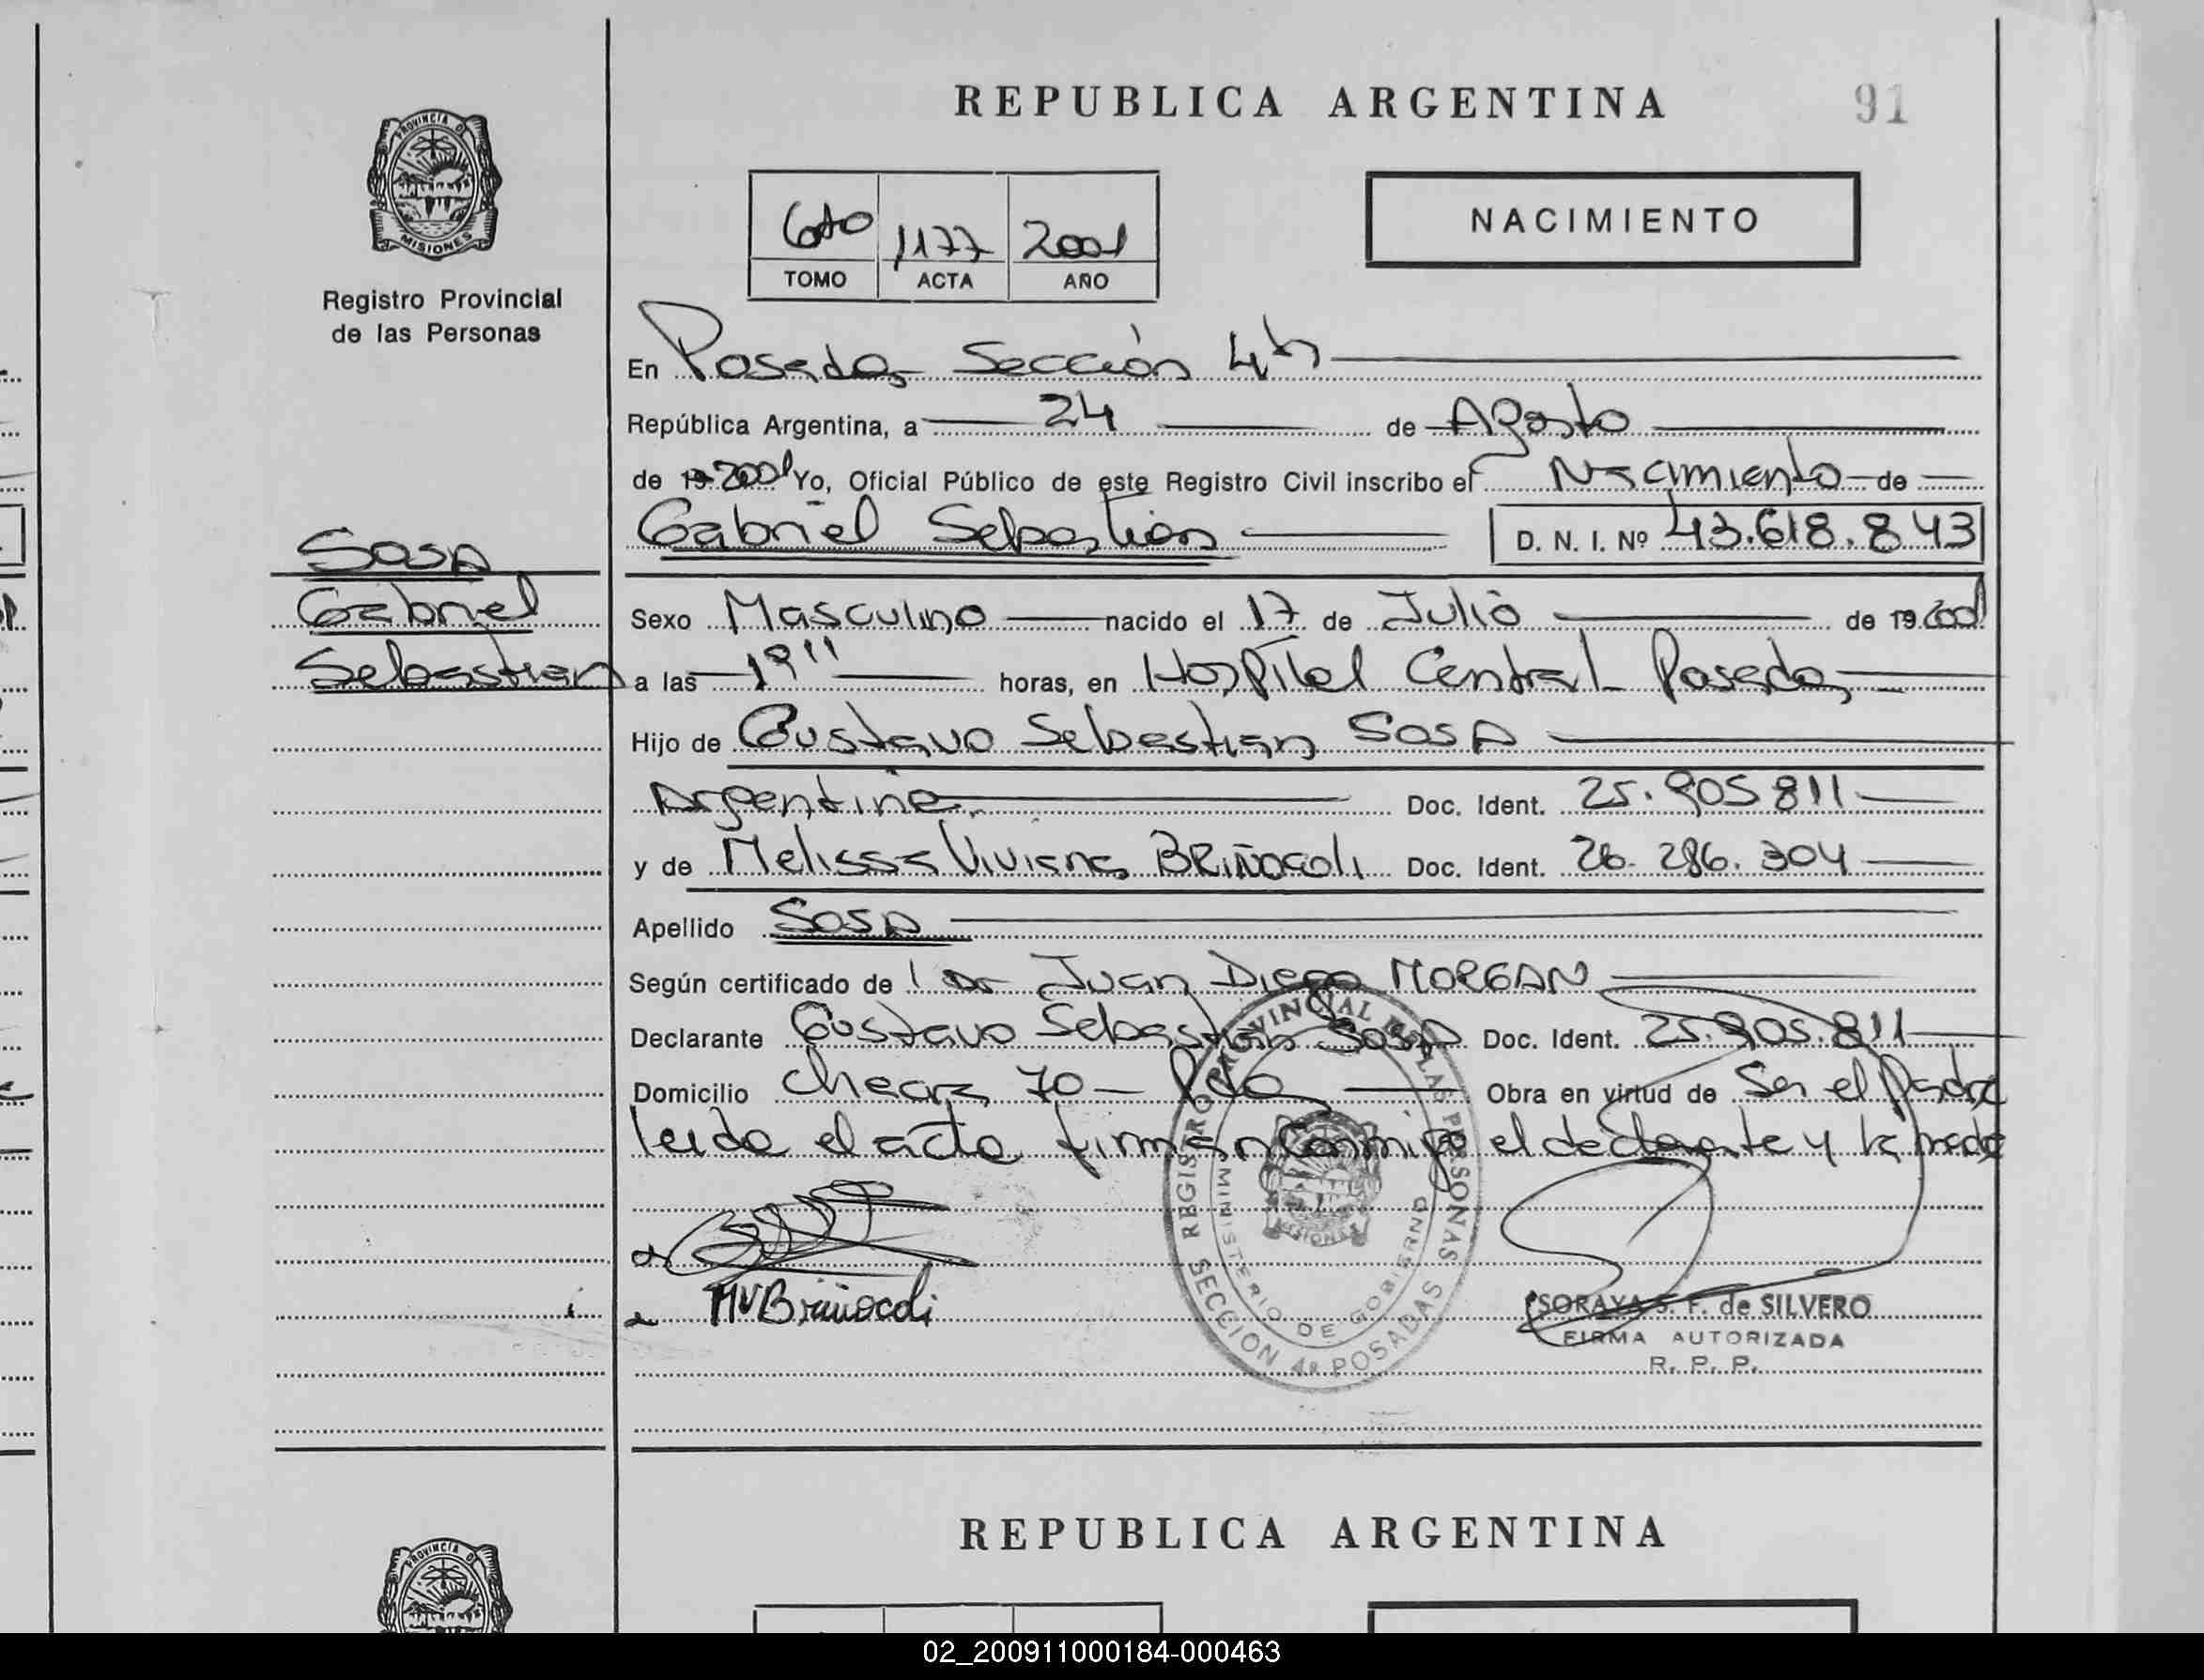 REPUBLICA ARGENTINA
91
PROVINCIA DE
MISIONES
Registro Provincial
de las Personas
6to 1177 2001
TOMO ACTA AÑO
NACIMIENTO
En Posadas Sección 4ta
República Argentina, a 24 de Agosto
de 19 2001 Yo, Oficial Público de este Registro Civil inscribo el Nacimiento de
Gabriel Sebastian D. N. I. Nº 43.618.843
Sosa
Gabriel
Sebastian
Sexo Masculino nacido el 17 de Julio de 19 2001
a las horas, en Hospital Central Posadas
Hijo de Gustavo Sebastian Sosa
Argentina Doc. Ident. 25.905811
y de Melissa Viviana BRIÑOCOLI Doc. Ident. 26.286.304
Apellido Sosa
Según certificado de l Dr Juan Diego MORGAN
Declarante Gustavo Sebastian Sosa Doc. Ident. 25.905.811
Domicilio 70 - Pdas Obra en virtud de Ser el Padre
leida el acta firman conmigo el declarante y la madre
MVBriñocoli
REGISTRO PROVINCIAL DE LAS PERSONAS
MINISTERIO DE GOBIERNO
MISIONES
SECCION 4ª POSADAS
SORAYA S. F. de SILVERO
FIRMA AUTORIZADA
R. P. P.
REPUBLICA ARGENTINA
PROVINCIA DE
02_200911000184-000463